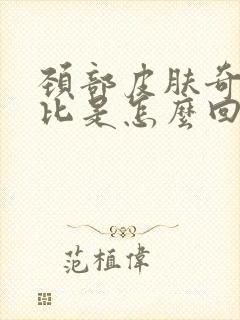 頸部皮肤奇
比是怎麼回
范植偉